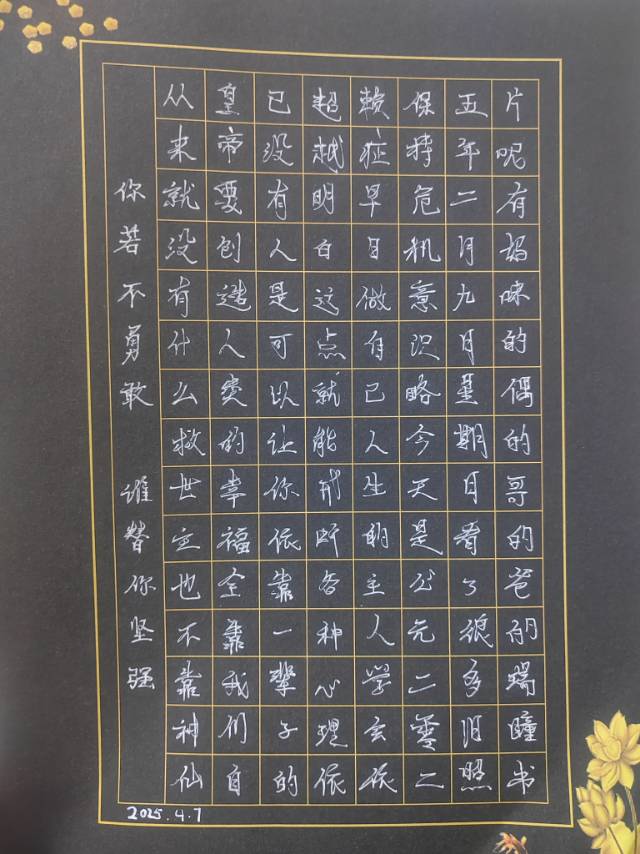 你若不勇敢 谁替你坚强
从来就没有什么救世主也不靠神仙
皇帝要创造人类的幸福全靠我们自
已没有人是可以让你依靠一辈子的
超越明白这点就能戒断各种心理依
赖症早日做自己人生的主人学会依
保持危机意识略今天是公元二零二
五年二月九月星期日看了很多旧照
片呢有妈咪的偶的哥的爸的瑞瞳书
2025.4.7